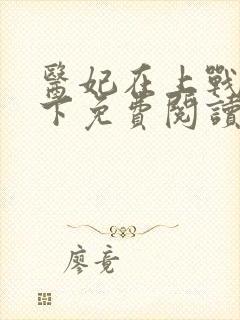 醫妃在上戰
下免費閱讀
廖竟